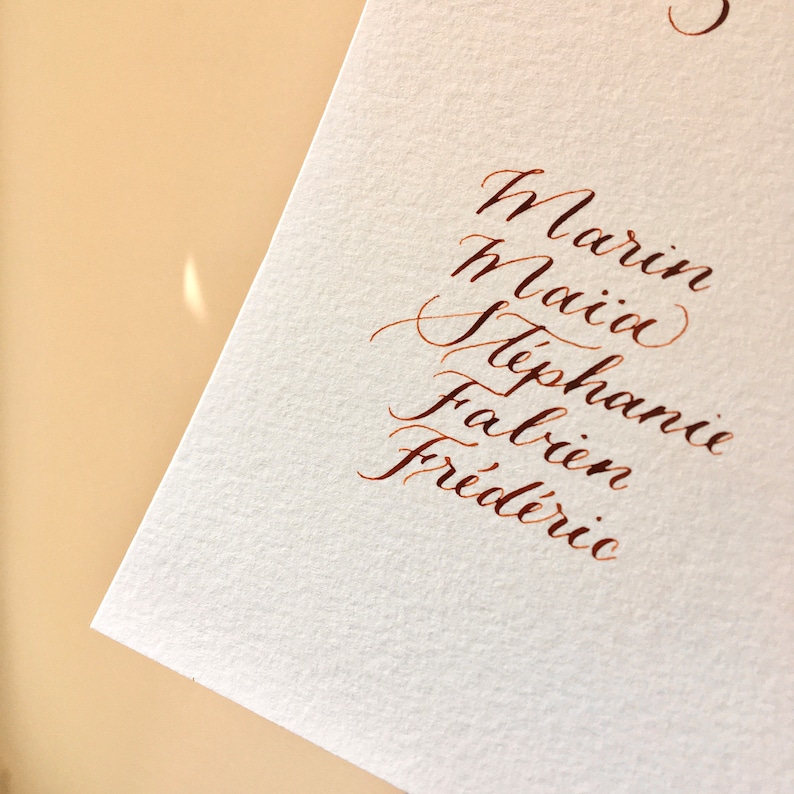 Marin
Maïa
Stéphanie
Fabien
Frédéric